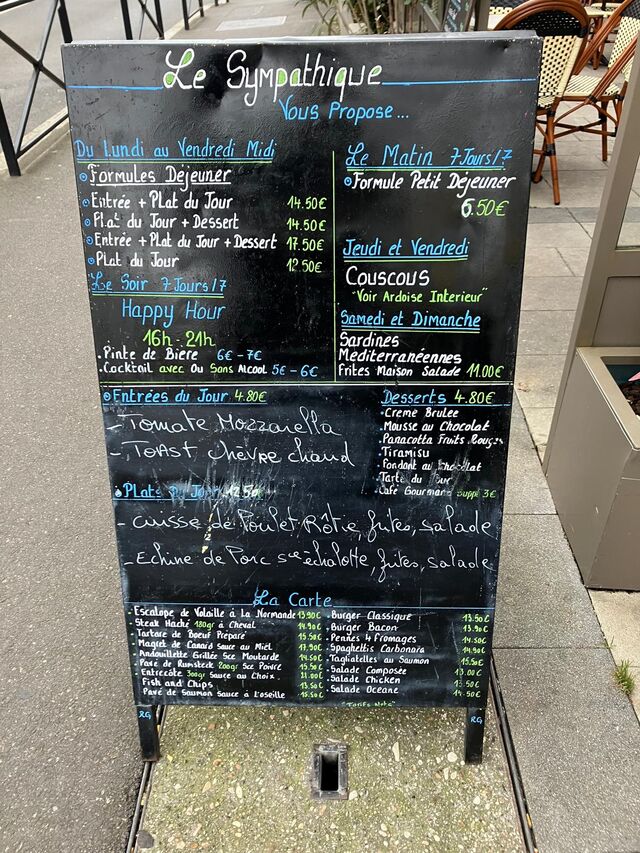 Le Sympathique
Vous Propose...
Du Lundi au Vendredi Midi
Formules Déjeuner
Entrée + Plat du Jour 14.50€
Plat du Jour + Dessert 14.50€
Entrée + Plat du Jour + Dessert 17.50€
Plat du Jour 12.50€
Le Soir 7 Jours/7
Happy Hour
16h-21h
.Pinte de Bière 6€-7€
.Cocktail avec Ou Sans Alcool 5€-6€
Le Matin 7 Jours/7
Formule Petit Déjeuner
6.50€
Jeudi et Vendredi
Couscous
"Voir Ardoise Interieur"
Samedi et Dimanche
Sardines
Mediterranéennes
Frites Maison Salade 11.00€
Entrées du Jour 4.80€
- Tomate Mozzarella
- Toast chèvre chaud
Desserts 4.80€
.Creme Brulee
.Mousse au Chocolat
.Panacotta Fruits Rouges
.Tiramisu
.Fondant au Chocolat
.Tarte du Jour
.Café Gourmand Suppl 3€
Plats du Jour 12.50
- cuisse de Poulet Rôtie, frites, salade
- Echine de Porc sce échalotte, frites, salade
La Carte
. Escalope de Volaille à La Normande 13.90€
. Steak Haché 180gr à Cheval 14.90€
. Tartare de Boeuf Préparé 15.50€
. Magret de Canard Sauce au Miel 17.90€
. Andouillette Grillée Sce Moutarde 14.50€
. Pavé de Rumsteck 200gr Sce Poivre 15.50€
. Entrecôte 300gr Sauce au Choix. 21.00€
. Fish and Chips 13.50€
. Pavé de Saumon Sauce à l'oseille 15.50€
. Burger Classique 13.50€
. Burger Bacon 13.90€
. Pennes 4 fromages 14.50€
. Spaghettis Carbonara 14.90€
. Tagliatelles au Saumon 15.50€
. Salade Composée 13.00€
. Salade Chicken 13.50€
. Salade Oceane 14.50€
"Tarifs Nets"
RG
RG